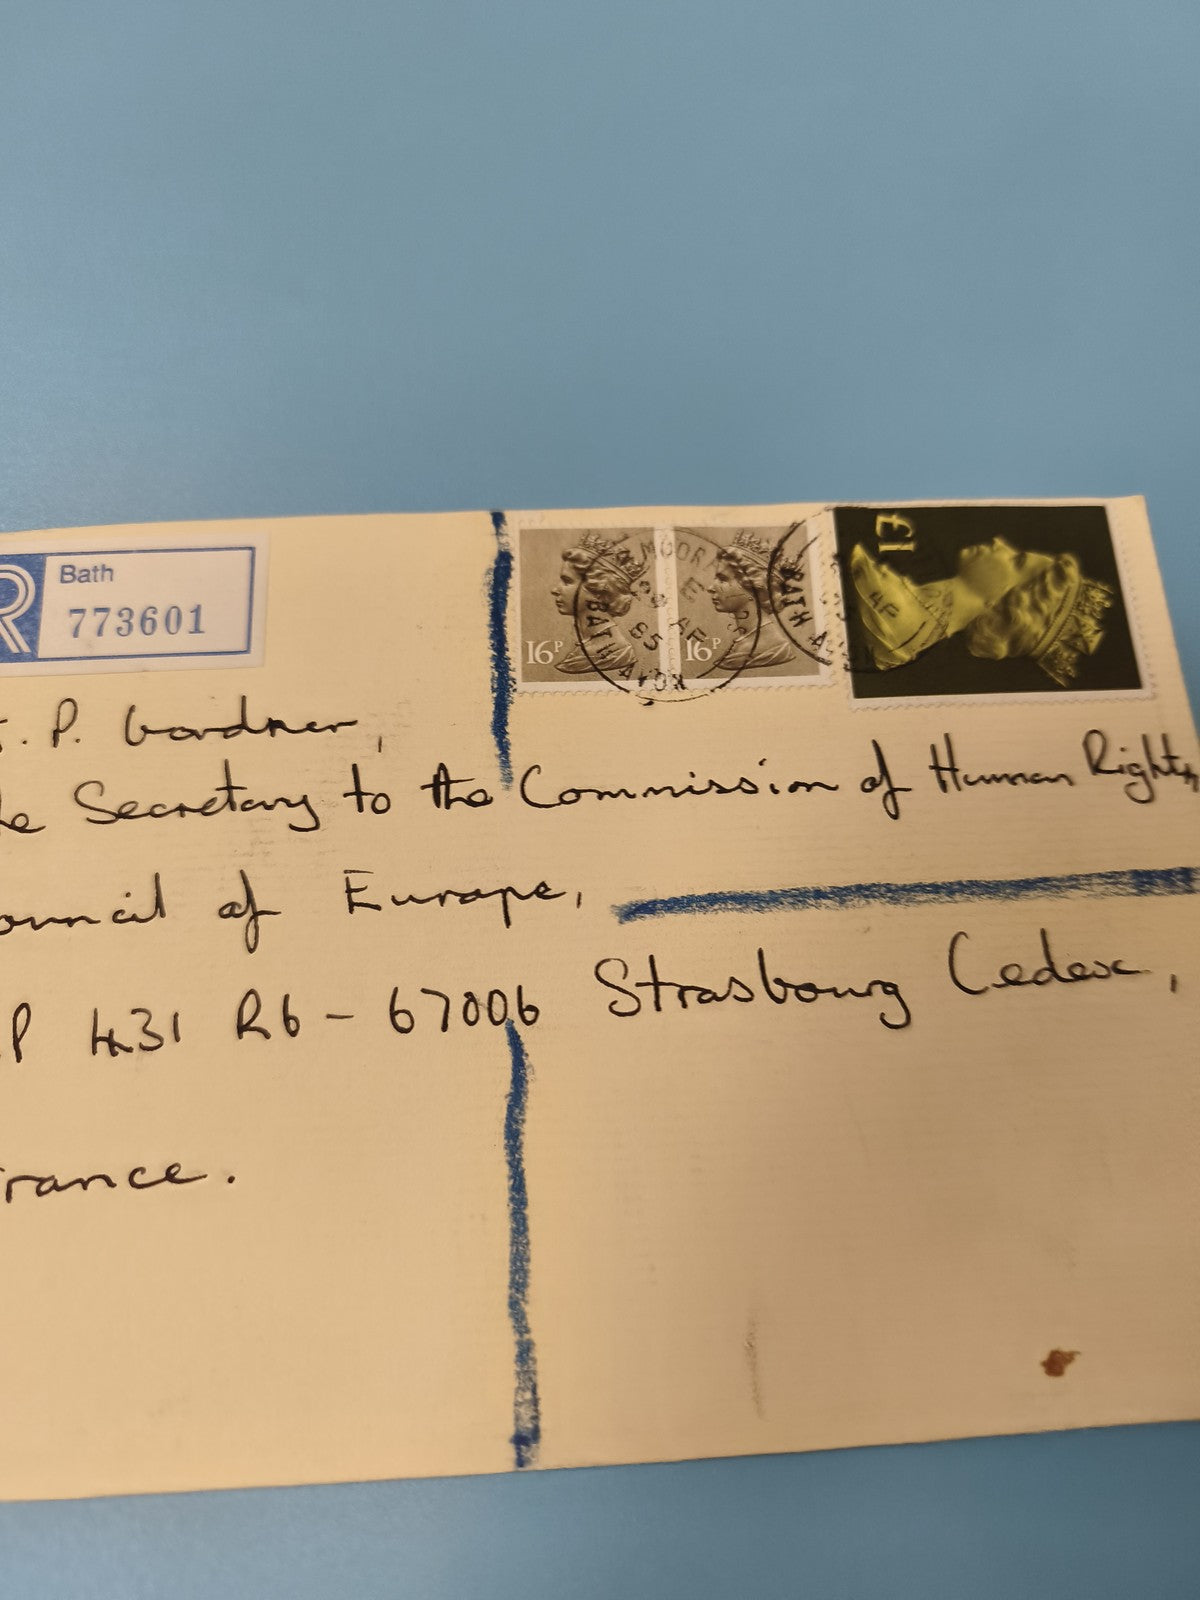 R Bath
773601
16P 16P £1
MOORLA E
29 AP
85
BATH AVON
BATH AVON
AP
J. P. Gardner,
The Secretary to the Commission of Human Rights,
Council of Europe,
BP 431 R6 - 67006 Strasbourg Cedex,
France.